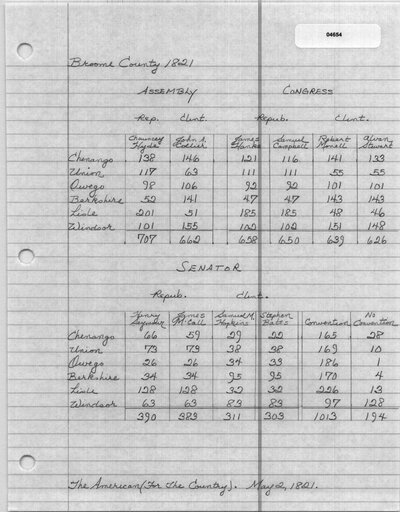 04654
Broome County 1821
ASSEMBLY CONGRESS
Rep. Clint. Repub. Clint.
Chauncey Hyde John A. Collier James Hanks Samuel Campbell Robert Monell Alvan Stewart
Chenango 138 146 121 116 141 133
Union 117 63 111 111 55 55
Owego 98 106 92 92 101 101
Berkshire 52 141 47 47 143 143
Lisle 201 51 185 185 48 46
Windsor 101 155 102 102 151 148
707 662 658 650 639 626
SENATOR
Repub. Clint.
Henry Seymour James McCall Samuel M. Hopkins Stephen Bates Convention No Convention
Chenango 66 59 29 22 165 38
Union 73 73 38 38 169 10
Owego 26 26 34 33 186 1
Berkshire 34 34 95 95 170 4
Lisle 128 128 32 32 226 13
Windsor 63 63 83 83 97 128
390 383 311 303 1013 194
The American (For The Country). May 2, 1821.